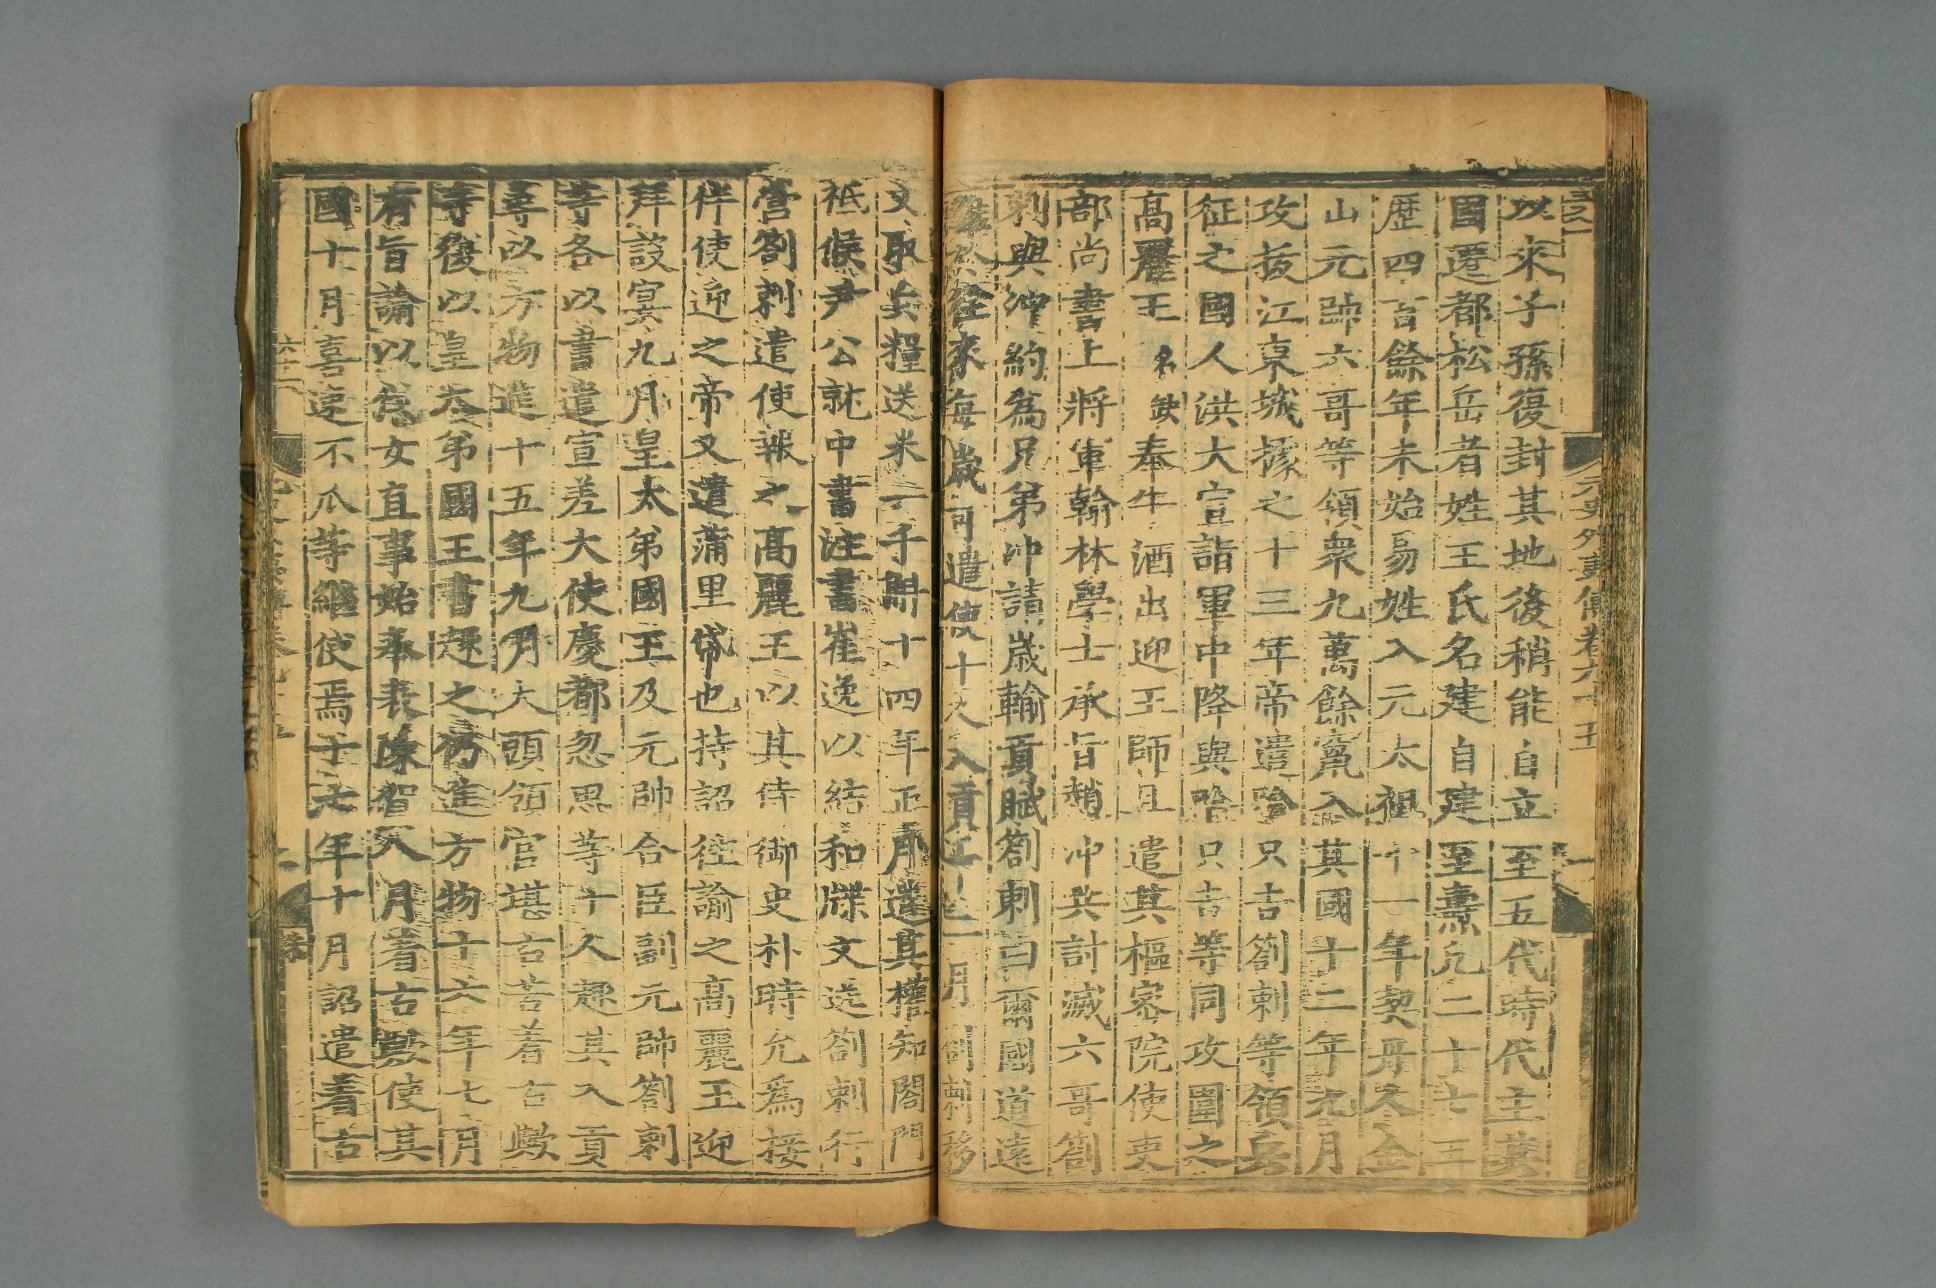 以來子孫復封其地後稍能自立至五代時代主其
國遷都松岳者姓王氏名建自建至燾凡二十七王
歷四百餘年未始易姓入元太祖十一年契丹金
山元帥六哥等領衆九萬餘竄入其國十二年九月
攻拔江東城據之十三年帝遣哈只吉劄剌等領兵
征之國人洪大宣詣軍中降與哈只吉等同攻圍之
高麗王名缺奉牛酒出迎王師且遣其樞密院使吏
部尚書上將軍翰林學士承旨趙冲共討滅六哥劄
剌與冲約爲兄弟冲請歲輸貢賦劄剌曰爾國道遠
難於往來每歲可遣使十人入貢十二月劄剌移
文取兵糧送米一千斛十四年正月遣其權知閤門
祗候尹公就中書注書崔逸以結和牒文送劄剌行
營劄剌遣使報之高麗王以其侍御史朴時允爲接
伴使迎之帝又遣蒲里帒也持詔往諭之高麗王迎
拜設宴九月皇太弟國王及元帥合臣副元帥劄剌
等各以書遣宣差大使慶都忽思等十人趣其入貢
尋以方物進十五年九月大頭領官堪古苦着古歟
等復以皇太弟國王書趣之仍進方物十六年七月
有旨諭以爲女直事始奉表陳賀八月着古歟使其
國十月喜速不爪等繼使焉十七年十月詔遣着古
元史外夷傳卷六十五